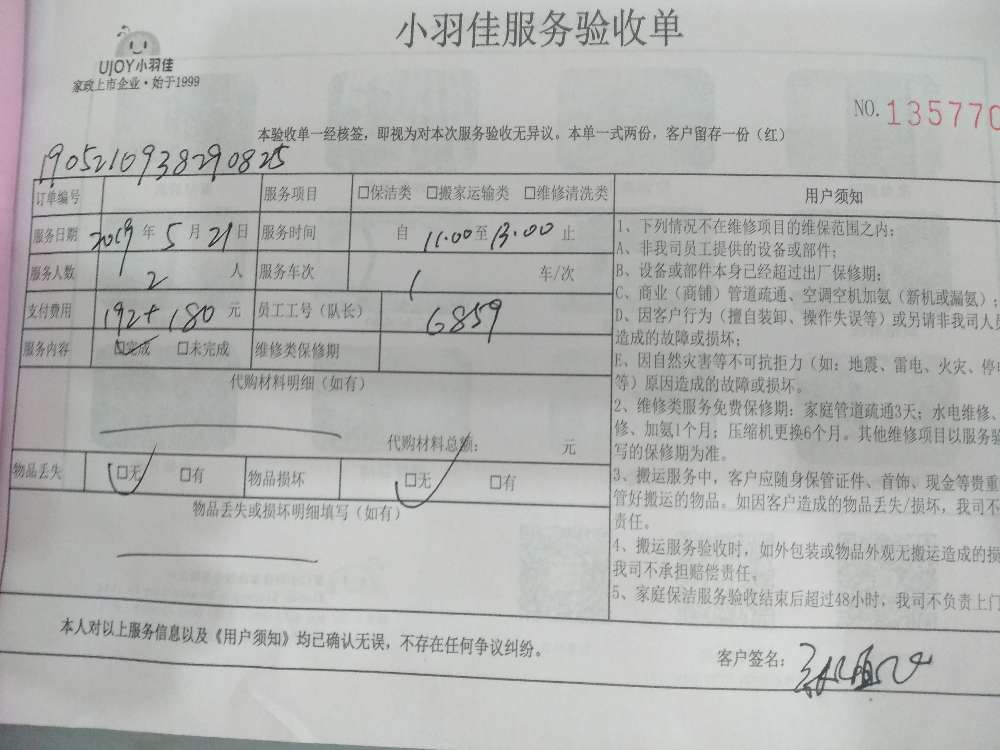 小羽佳服务验收单
UJOY小羽佳
家政上市企业·始于1999
NO.135770
本验收单一经核签，即视为对本次服务验收无异议。本单一式两份，客户留存一份（红）
1905210938290825
订单编号 服务项目 □保洁类 □搬家运输类 □维修清洗类 用户须知
服务日期 2019年5月21日 服务时间 自11:00至13:00止
服务人数 2人 服务车次 1车/次
支付费用 192+180元 员工工号（队长） 6859
服务内容 □完成 □未完成 维修类保修期
代购材料明细（如有）
代购材料总额： 元
物品丢失 □无 □有 物品损坏 □无 □有
物品丢失或损坏明细填写（如有）
1、下列情况不在维修项目的维保范围之内；
A、非我司员工提供的设备或部件；
B、设备或部件本身已经超过出厂保修期；
C、商业（商铺）管道疏通、空调空机加氨（新机或漏氨）；
D、因客户行为（擅自装卸、操作失误等）或另请非我司人员
造成的故障或损坏；
E、因自然灾害等不可抗拒力（如：地震、雷电、火灾、停电
等）原因造成的故障或损坏。
2、维修类服务免费保修期：家庭管道疏通3天；水电维修、
修、加氨1个月；压缩机更换6个月。其他维修项目以服务验
写的保修期为准。
3、搬运服务中，客户应随身保管证件、首饰、现金等贵重
管好搬运的物品。如因客户造成的物品丢失/损坏，我司不
责任。
4、搬运服务验收时，如外包装或物品外观无搬运造成的损
我司不承担赔偿责任。
5、家庭保洁服务验收结束后超过48小时，我司不负责上门
本人对以上服务信息以及《用户须知》均已确认无误，不存在任何争议纠纷。
客户签名：